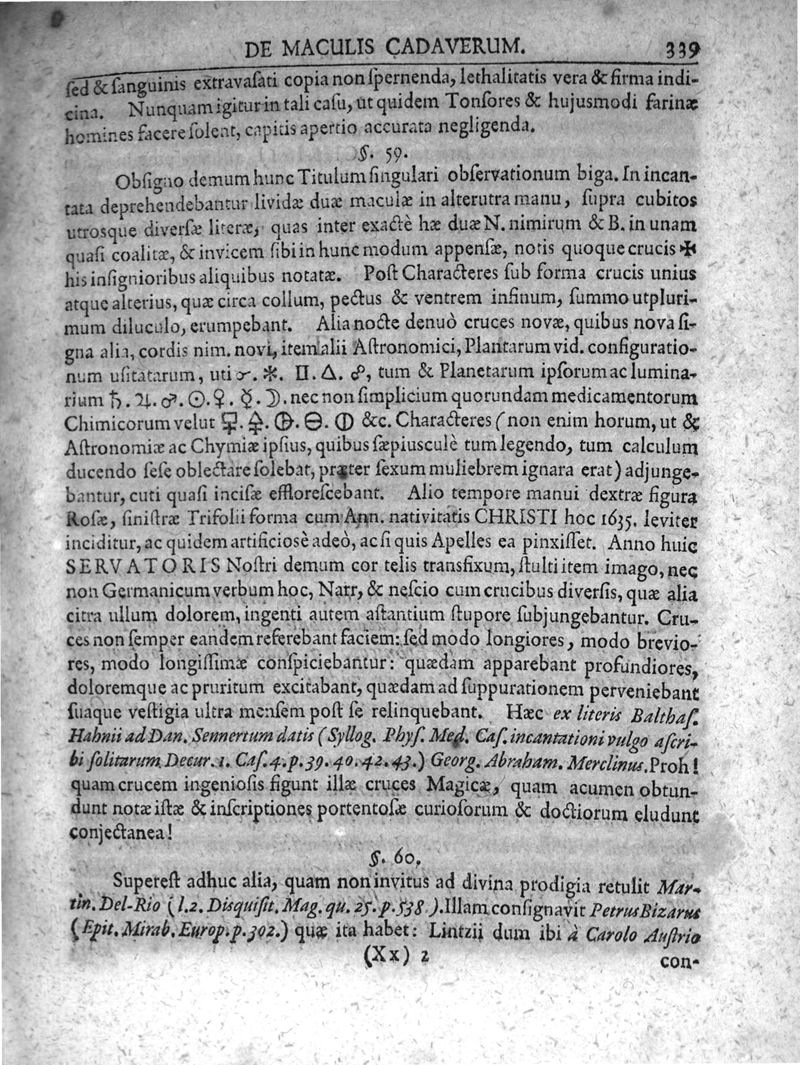 DE MACULIS CADAVERUM. 339
ſed & ſanguinis extravaſati copia non ſpernenda, lethalitatis vera & firma indi-
cina. Nunquam igitur in tali caſu, ut quidem Tonſores & hujusmodi farinæ
homines facere ſolent, capitis apertio accurata negligenda.
§. 59.
Obſigno demum hunc Titulum ſingulari obſervationum biga. In incan-
tata deprehendebantur lividæ duæ maculæ in alterutra manu, ſupra cubitos
utrosque diverſæ literæ, quas inter exactè hæ duæ N. nimirum & B. in unam
quaſi coalitæ, & invicem ſibi in hunc modum appenſæ, notis quoque crucis ✠
his inſignioribus aliquibus notatæ. Poſt Characteres ſub forma crucis unius
atque alterius, quæ circa collum, pectus & ventrem infinum, ſummo ut pluri-
mum diluculo, erumpebant. Alia nocte denuò cruces novæ, quibus nova ſi-
gna alia, cordis nim. novi, item alii Aſtronomici, Plantarum vid. configuratio-
num uſitatarum, uti ☌. ✻. □. △. ☍, tum & Planetarum ipſorum ac lumina-
rium ♄. ♃. ♂. ☉. ♀. ☿. ☽. nec non ſimplicium quorundam medicamentorum
Chimicorum velut 🜿. 🜍. 🜨. 🜔. ⦶ &c. Characteres (non enim horum, ut &
Aſtronomiæ ac Chymiæ ipſius, quibus ſæpiusculè tum legendo, tum calculum
ducendo ſeſe oblectare ſolebat, præter ſexum muliebrem ignara erat) adjunge-
bantur, cuti quaſi inciſæ effloreſcebant. Alio tempore manui dextræ figura
Roſæ, ſiniſtræ Trifolii forma cum Ann. nativitatis CHRISTI hoc 1635. leviter
inciditur, ac quidem artificiosè adeò, ac ſi quis Apelles ea pinxiſſet. Anno huic
SERVATORIS Noſtri demum cor telis transfixum, ſtulti item imago, nec
non Germanicum verbum hoc, Narr, & neſcio cum crucibus diverſis, quæ alia
citra ullum dolorem, ingenti autem aſtantium ſtupore ſubjungebantur. Cru-
ces non ſemper eandem referebant faciem: ſed modo longiores, modo brevio-
res, modo longiſſimæ conſpiciebantur: quædam apparebant profundiores,
doloremque ac pruritum excitabant, quædam ad ſuppurationem perveniebant
ſuaque veſtigia ultra menſem poſt ſe relinquebant. Hæc ex literis Balthaſ.
Hahnii ad Dan. Sennertum datis (Syllog. Phyſ. Med. Caſ. incantationi vulgo aſcri-
bi ſolitarum Decur. 1. Caſ. 4. p. 39. 40. 42. 43.) Georg. Abraham. Merclinus. Proh!
quam crucem ingenioſis figunt illæ cruces Magicæ, quam acumen obtun-
dunt notæ iſtæ & inſcriptiones portentoſæ curioſorum & doctiorum eludunt
conjectanea!
§. 60.
Supereſt adhuc alia, quam non invitus ad divina prodigia retulit Mar-
tin. Del-Rio (l. 2. Disquiſit. Mag. qu. 25. p. 538.). Illam conſignavit Petrus Bizarus
(Epit. Mirab. Europ. p. 302.) quæ ita habet: Lintzii dum ibi à Carolo Auſtrio
(Xx) 2 con-